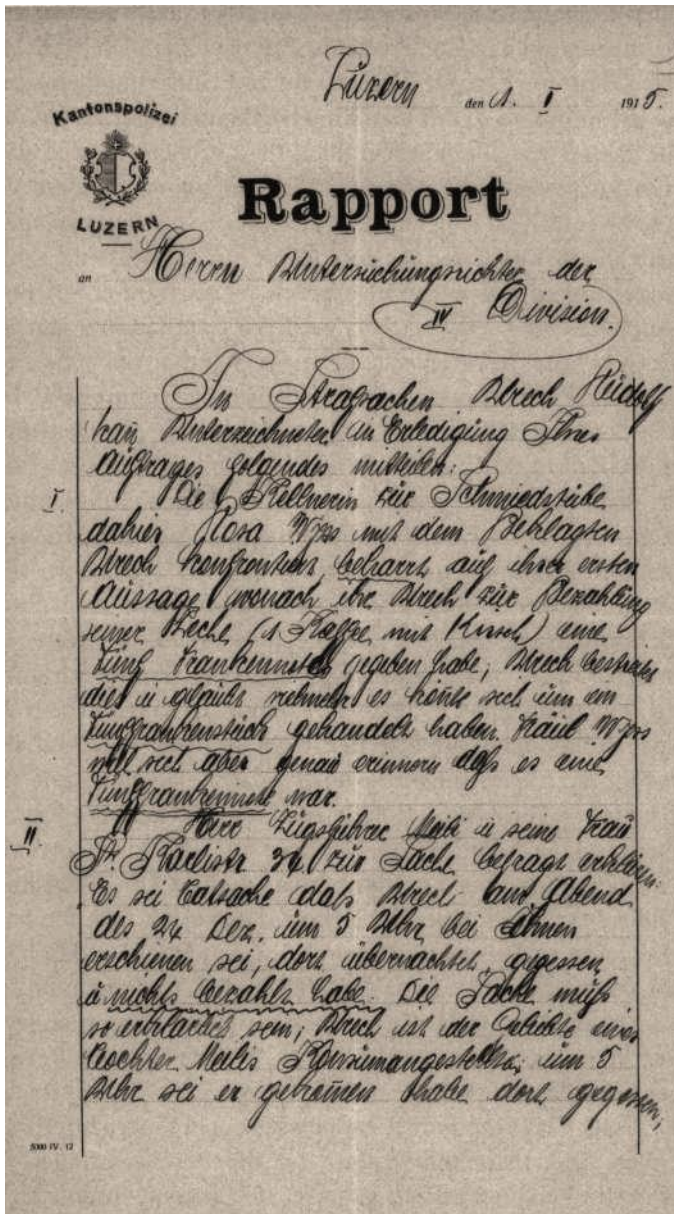 Luzern den 1. I 1915.
Kantonspolizei
LUZERN
Rapport
an Herrn Untersuchungsrichter der
IV Division.
In Strafsachen Strech Rüdolf
kan̄ Unterzeichneter in Erledigung Ihres
Auftrages folgendes mitteilen:
I. Die Kellnerin zür Schmiedstübe
dahier Rosa Wyss mit dem Beklagten
Strech konfrontiert, beharrt auf ihrer ersten
Aussage wonach ihr Strech zür Bezahlüng
seiner Zeche (1 Kaffee mit Kirsch) eine
Fünf Frankennote gegeben habe; Strech bestreitet
dies ü glaübt vielmehr es kön̄te sich üm ein
Fünffrankenstück gehandelt haben. Fräül Wyss
will sich aber genaü erinnern daß es eine
Fünffrankennote war.
II. Herr Zügsführer Meili ü seine Fraü
St. Karlistr 34 zür Sache befragt erklären:
Es sei Tatsache daß Strech am Abend
des 24 Dez. üm 5 Uhr bei Ihnen
erschienen sei, dort übernachtet, gegessen
ü nichts bezahlt habe. Die Sache müß
so erklärlich sein; Strech ist der Geliebte einer
Tochter Meilis Konsümangestellte; üm 5
Uhr sei er gekom̄en habe dort gegessen,
5000 IV. 12